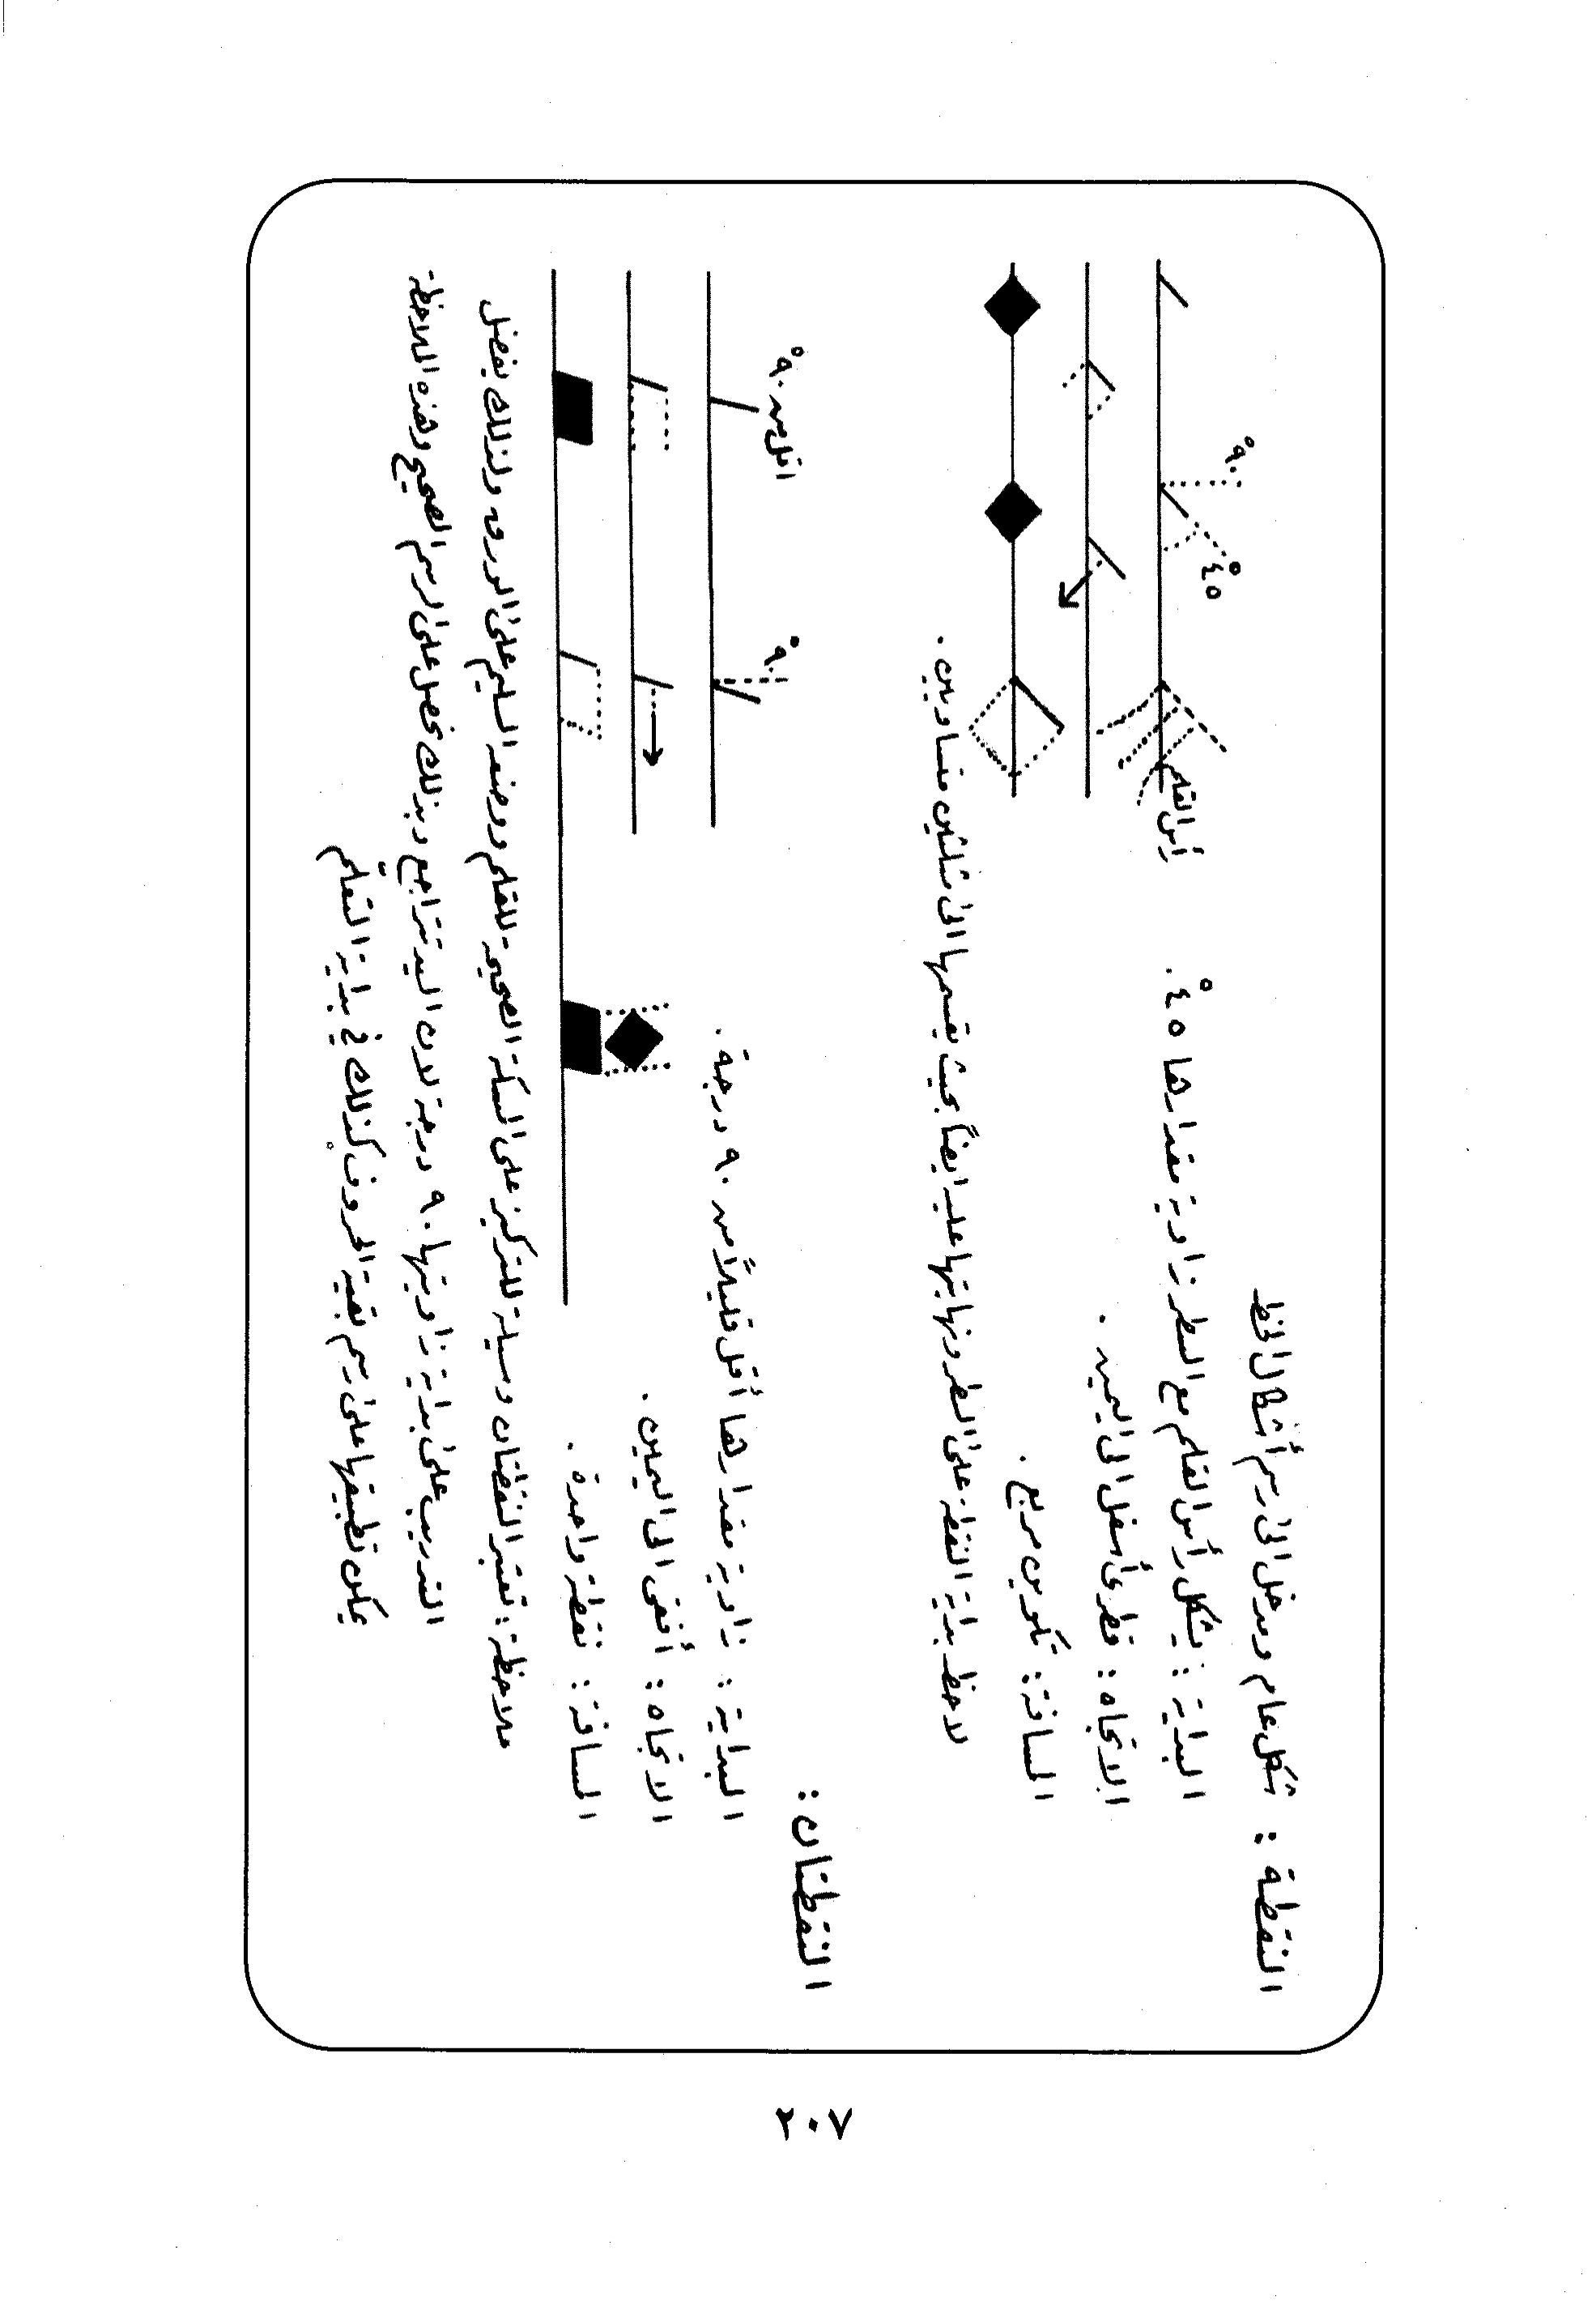 النقطة : شكل عام ومدخل الى رسم أشكال الخط
البداية : يشكل رأس القلم مع السطر زاوية مقدارها ٤٥° .
الاتجاه : قطري أسفل الى اليمين .
المسافة : تكوين مربع .
لاحظ بداية النقطة على السطر ونهايتها عليه ايضاً بحيث يقسمها الى مثلثين متساويين .
٩٠°
٤٥°
رأس القلم
النقطتان :
البداية : زاوية مقدارها أقل قليلاً من ٩٠ درجة .
الاتجاه : أفقي الى اليمين .
المسافة : نقطة واحدة .
اقل من ٩٠°
٩٠°
ملاحظة : تعتبر النقطتان وسيلة للتركيز على المسكة الصحيحة للقلم ووضعه السليم على الورقة ولذلك يفضل
التدريب على بداية زاويتها ٩٠ درجة لان اليد تتراجع وبذلك نحصل على الرسم الصحيح وهذه الملاحظة
يمكن تطبيقها على رسم بقية الحروف كذلك في بداية التعلم
٢٠٧